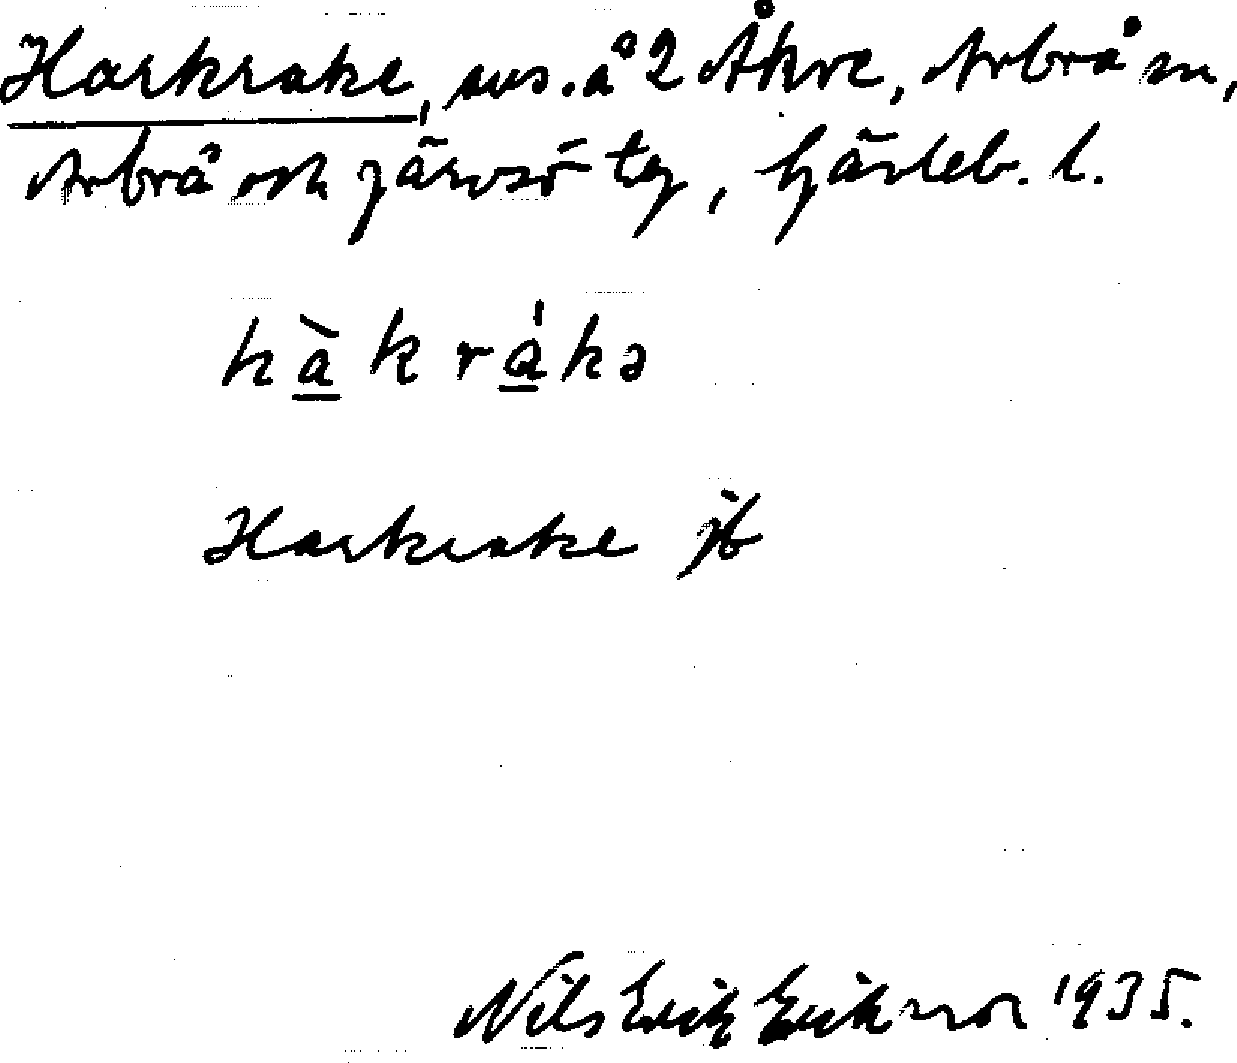 Harkrake, avs. å 2 Åkre, Arbrå sn,
Arbrå och Järvsö tg, Gävleb. l.
hàkrákə
Harkrake jb
Nils Erik Eriksson 1935.